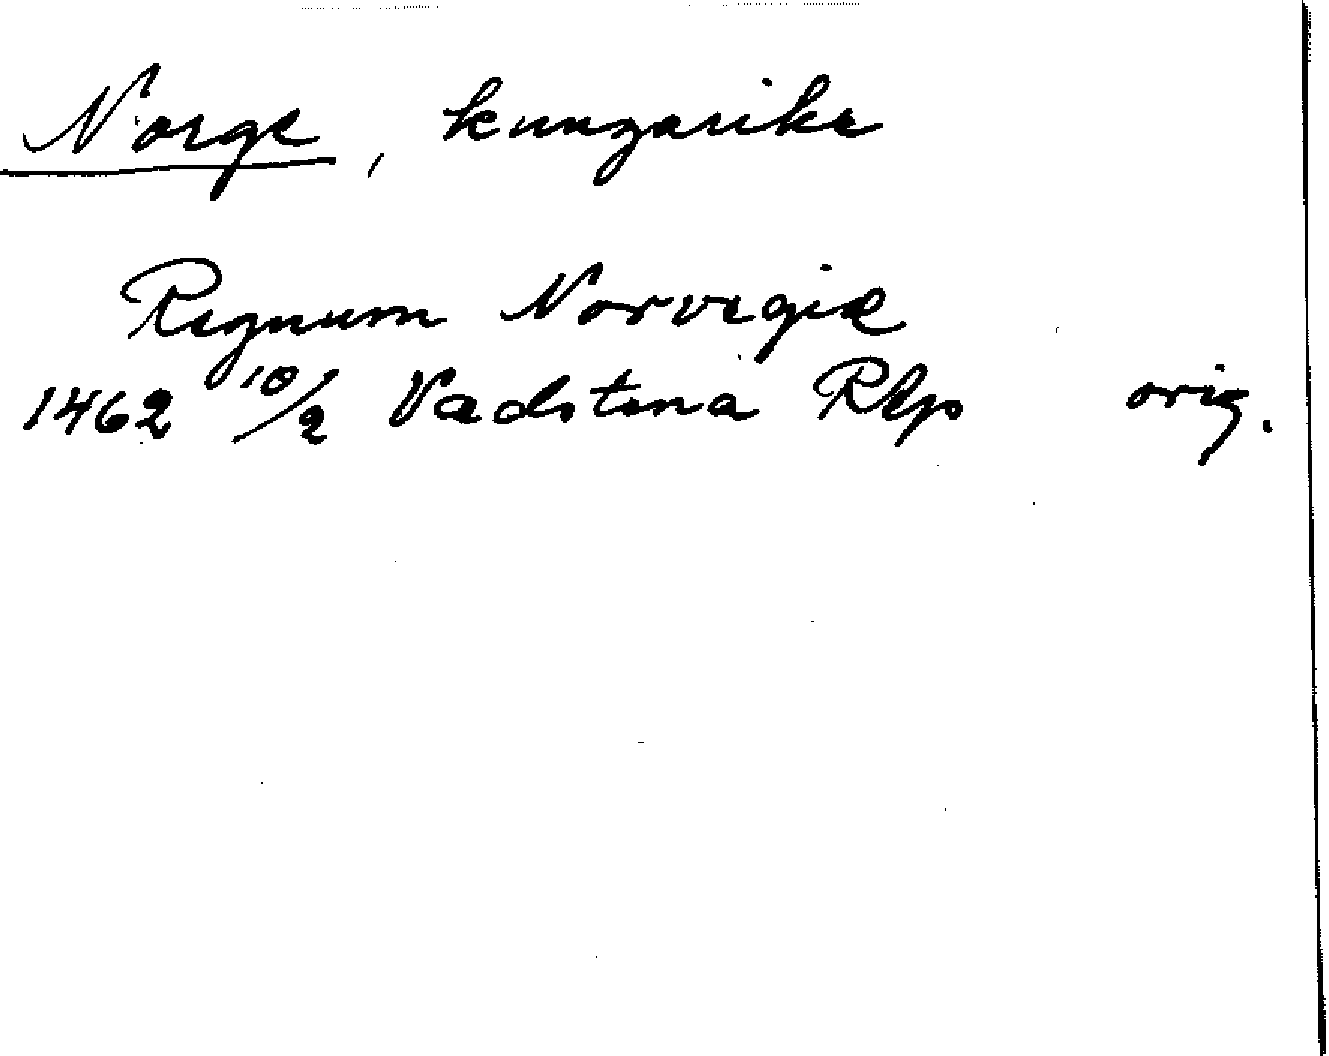 Norge, kungarike
Regnum Norvegie
1462 10/2 Vadstena Rbp orig.